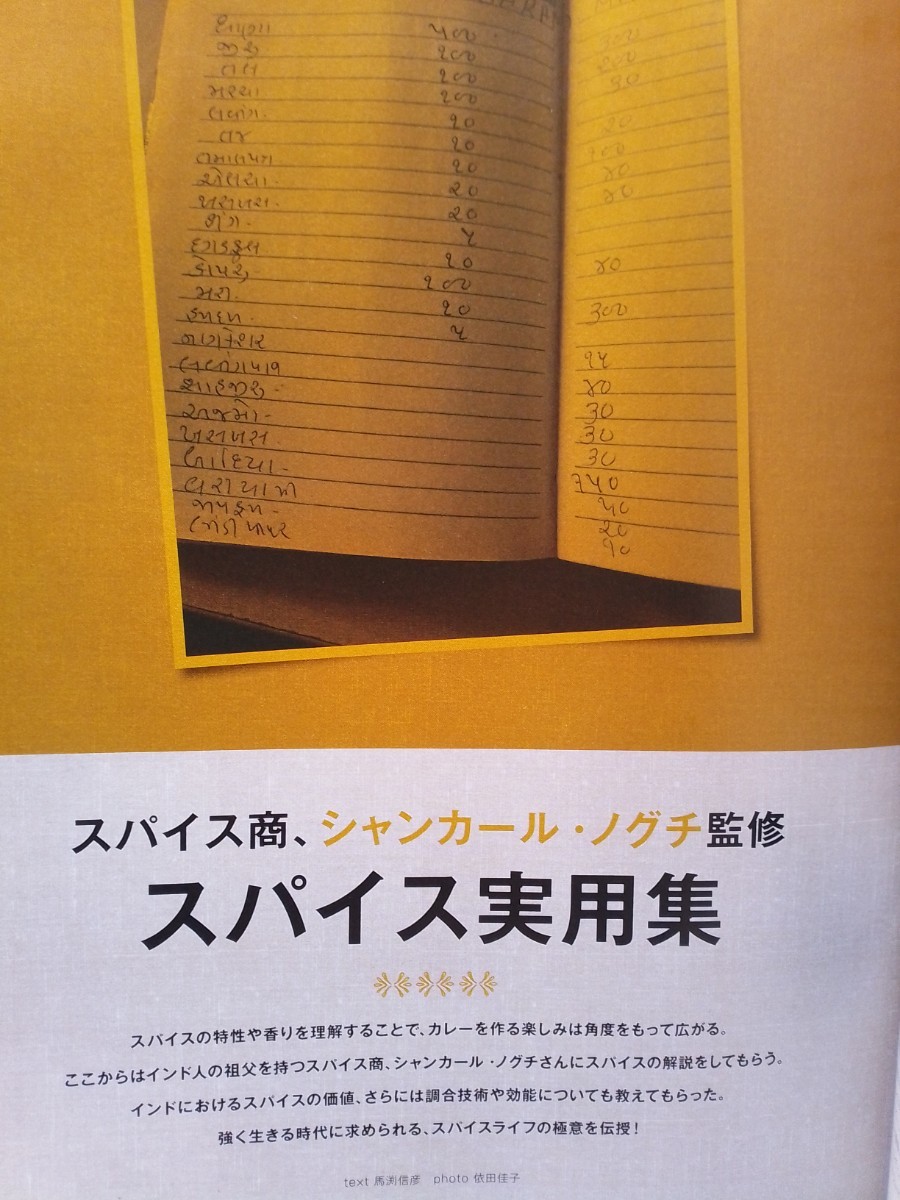 ૫૦૦
જીરુ ૧૦૦
તલ ૧૦૦
મરચા ૧૦૦
લવીંગ. ૧૦
તજ ૧૦
તમાલપત્ર ૧૦
૨૦
ખસખસ. ૨૦
હીંગ. ૫
દગડફુલ ૧૦
કોપરુ ૧૦૦
મરી. ૧૦
૫
નાગકેશર
શાહજીરુ
ખસખસ
૪૦
૩૦૦
૧૫
૪૦
૩૦
૩૦
૩૦
૫૦
૨૦
૧૦
スパイス商、シャンカール・ノグチ監修
スパイス実用集
スパイスの特性や香りを理解することで、カレーを作る楽しみは角度をもって広がる。
ここからはインド人の祖父を持つスパイス商、シャンカール・ノグチさんにスパイスの解説をしてもらう。
インドにおけるスパイスの価値、さらには調合技術や効能についても教えてもらった。
強く生きる時代に求められる、スパイスライフの極意を伝授！
text 馬渕信彦 photo 依田佳子